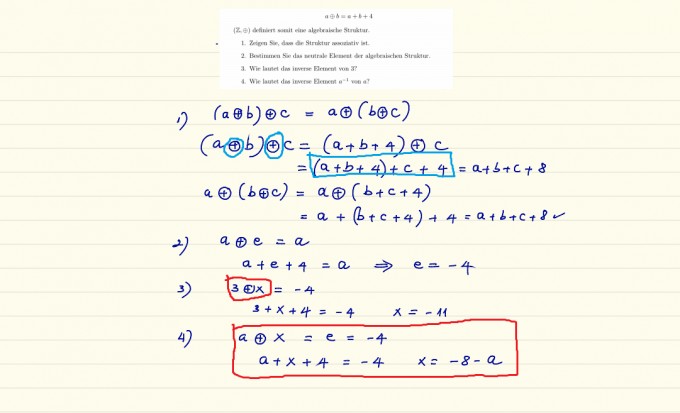 a ⊕ b = a + b + 4
(ℤ, ⊕) definiert somit eine algebraische Struktur.
1. Zeigen Sie, dass die Struktur assoziativ ist.
2. Bestimmen Sie das neutrale Element der algebraischen Struktur.
3. Wie lautet das inverse Element von 3?
4. Wie lautet das inverse Element a⁻¹ von a?
1) (a⊕b)⊕c = a⊕(b⊕c)
(a⊕b)⊕c = (a+b+4)⊕c
= (a+b+4)+c+4 = a+b+c+8
a⊕(b⊕c) = a⊕(b+c+4)
= a+(b+c+4)+4 = a+b+c+8 ✓
2) a⊕e = a
a+e+4 = a ⇒ e = -4
3) 3⊕x = -4
3+x+4 = -4 x = -11
4) a⊕x = e = -4
a+x+4 = -4 x = -8-a